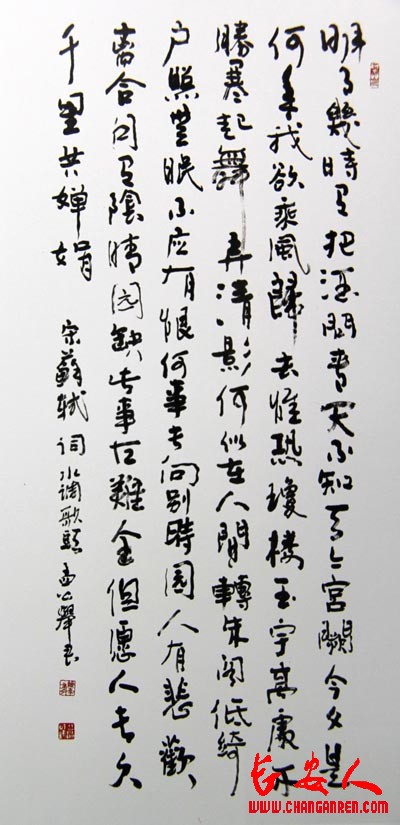 明月幾時有把酒問青天不知天上宮闕今夕是
何年我欲乘風歸去惟恐瓊樓玉宇高處不
勝寒起舞弄清影何似在人間轉朱閣低綺
户照無眠不应有恨何事長向別時圓人有悲歡
离合月有陰晴圓缺此事古難全但愿人長久
千里共嬋娟
宋蘇軾詞水調歌頭
长安人
WWW.CHANGANREN.COM